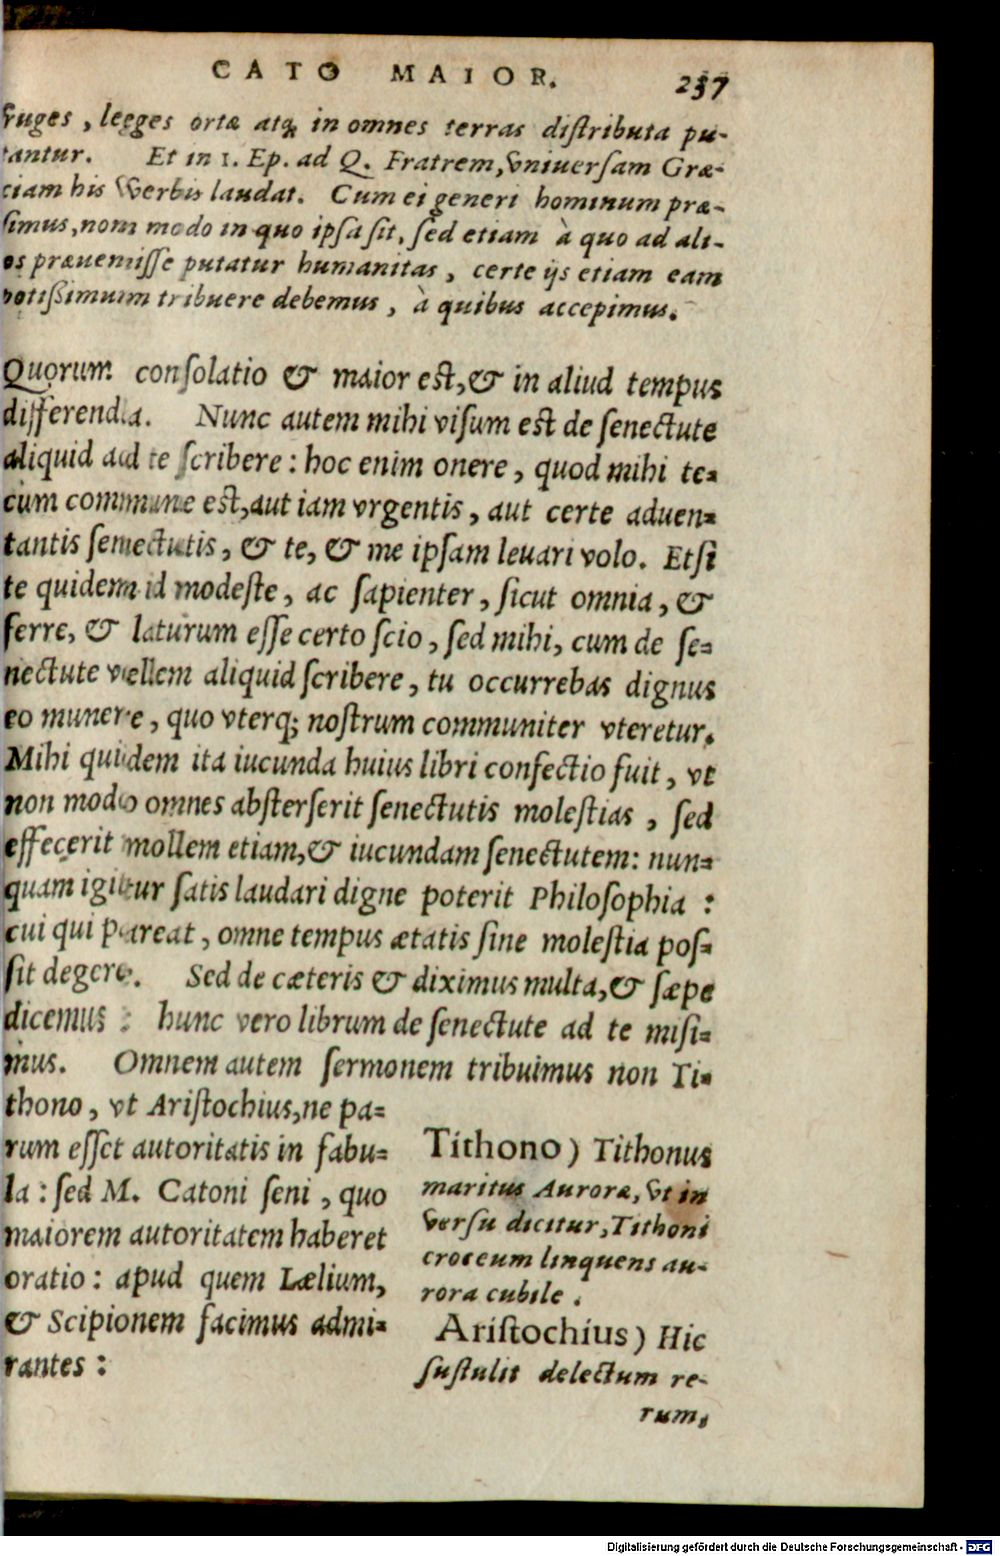 CATO MAIOR. 237
fruges, leeges ortæ atq; in omnes terras distributa pu-
tantur. Et in 1. Ep. ad Q. Fratrem, vniuersam Græ-
ciam his verbis laudat. Cum ei generi hominum præ-
simus, nom modo in quo ipsa sit, sed etiam à quo ad ali-
os præuenisse putatur humanitas, certe ijs etiam eam
potißimum tribuere debemus, à quibus accepimus.
Quorum consolatio & maior est, & in aliud tempus
differenda. Nunc autem mihi visum est de senectute
aliquid ad te scribere: hoc enim onere, quod mihi te-
cum commune est, aut iam vrgentis, aut certe aduen-
tantis senectutis, & te, & me ipsam leuari volo. Etsi
te quidem id modeste, ac sapienter, sicut omnia, &
ferre, & laturum esse certo scio, sed mihi, cum de se-
nectute vellem aliquid scribere, tu occurrebas dignus
eo munere, quo vterq; nostrum communiter vteretur.
Mihi quidem ita iucunda huius libri confectio fuit, vt
non modo omnes absterserit senectutis molestias, sed
effecerit mollem etiam, & iucundam senectutem: nun-
quam igitur satis laudari digne poterit Philosophia:
cui qui pareat, omne tempus ætatis sine molestia pos-
sit degere. Sed de cæteris & diximus multa, & sæpe
dicemus: hunc vero librum de senectute ad te misi-
mus. Omnem autem sermonem tribuimus non Ti-
thono, vt Aristochius, ne pa-
rum esset autoritatis in fabu-
la: sed M. Catoni seni, quo
maiorem autoritatem haberet
oratio: apud quem Lælium,
& Scipionem facimus admi-
rantes:
Tithono) Tithonus
maritus Auroræ, vt in
versu dicitur, Tithoni
croceum linquens au-
rora cubile.
Aristochius) Hic
sustulit delectum re-
rum,
Digitalisierung gefördert durch die Deutsche Forschungsgemeinschaft - DFG